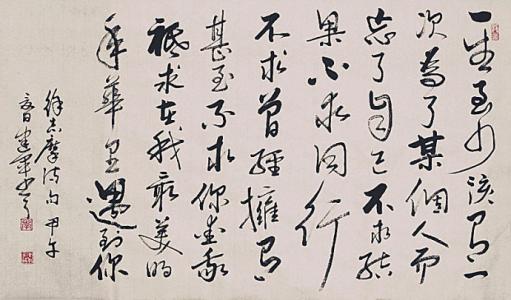 一生至少該有一
次為了某個人而
忘了自己不求結
果不求同行
不求曾經擁有
甚至不求你愛我
祗求在我最美的
年華里遇到你
徐志摩诗句甲午
春建